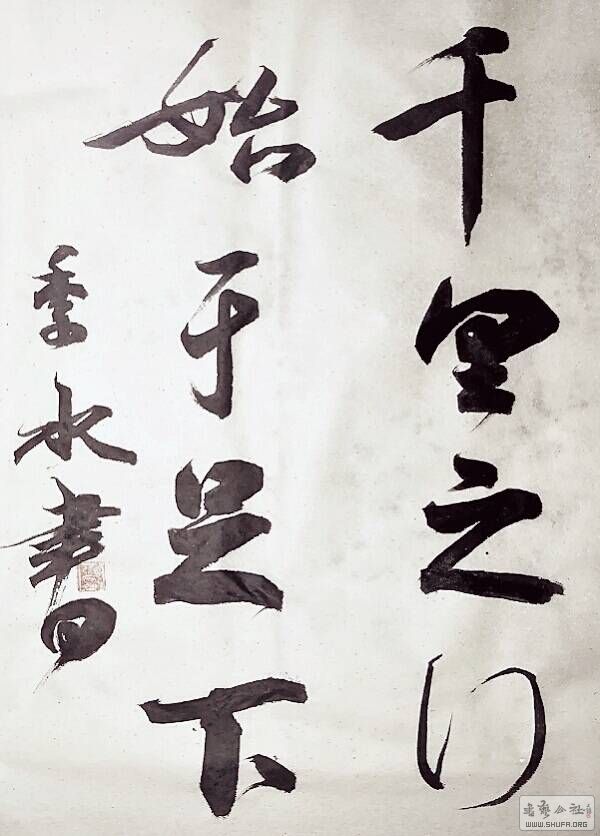 千里之行
始于足下
季水書
書藝公社
WWW.SHUFA.ORG